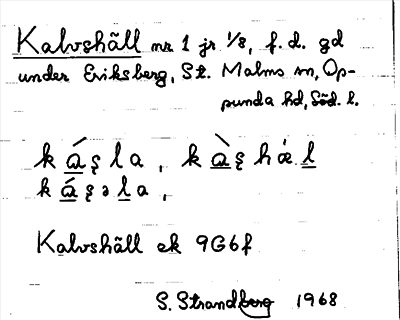 Kalvshäll nr 1 jr 1/8, f.d. gd
under Eriksberg, St. Malms sn, Op-
punda hd, Söd. l.
k á ş l a , k à ş h æ̇ l
k á ş ə l a ,
Kalvshäll ek 9G6f
S. Strandberg 1968